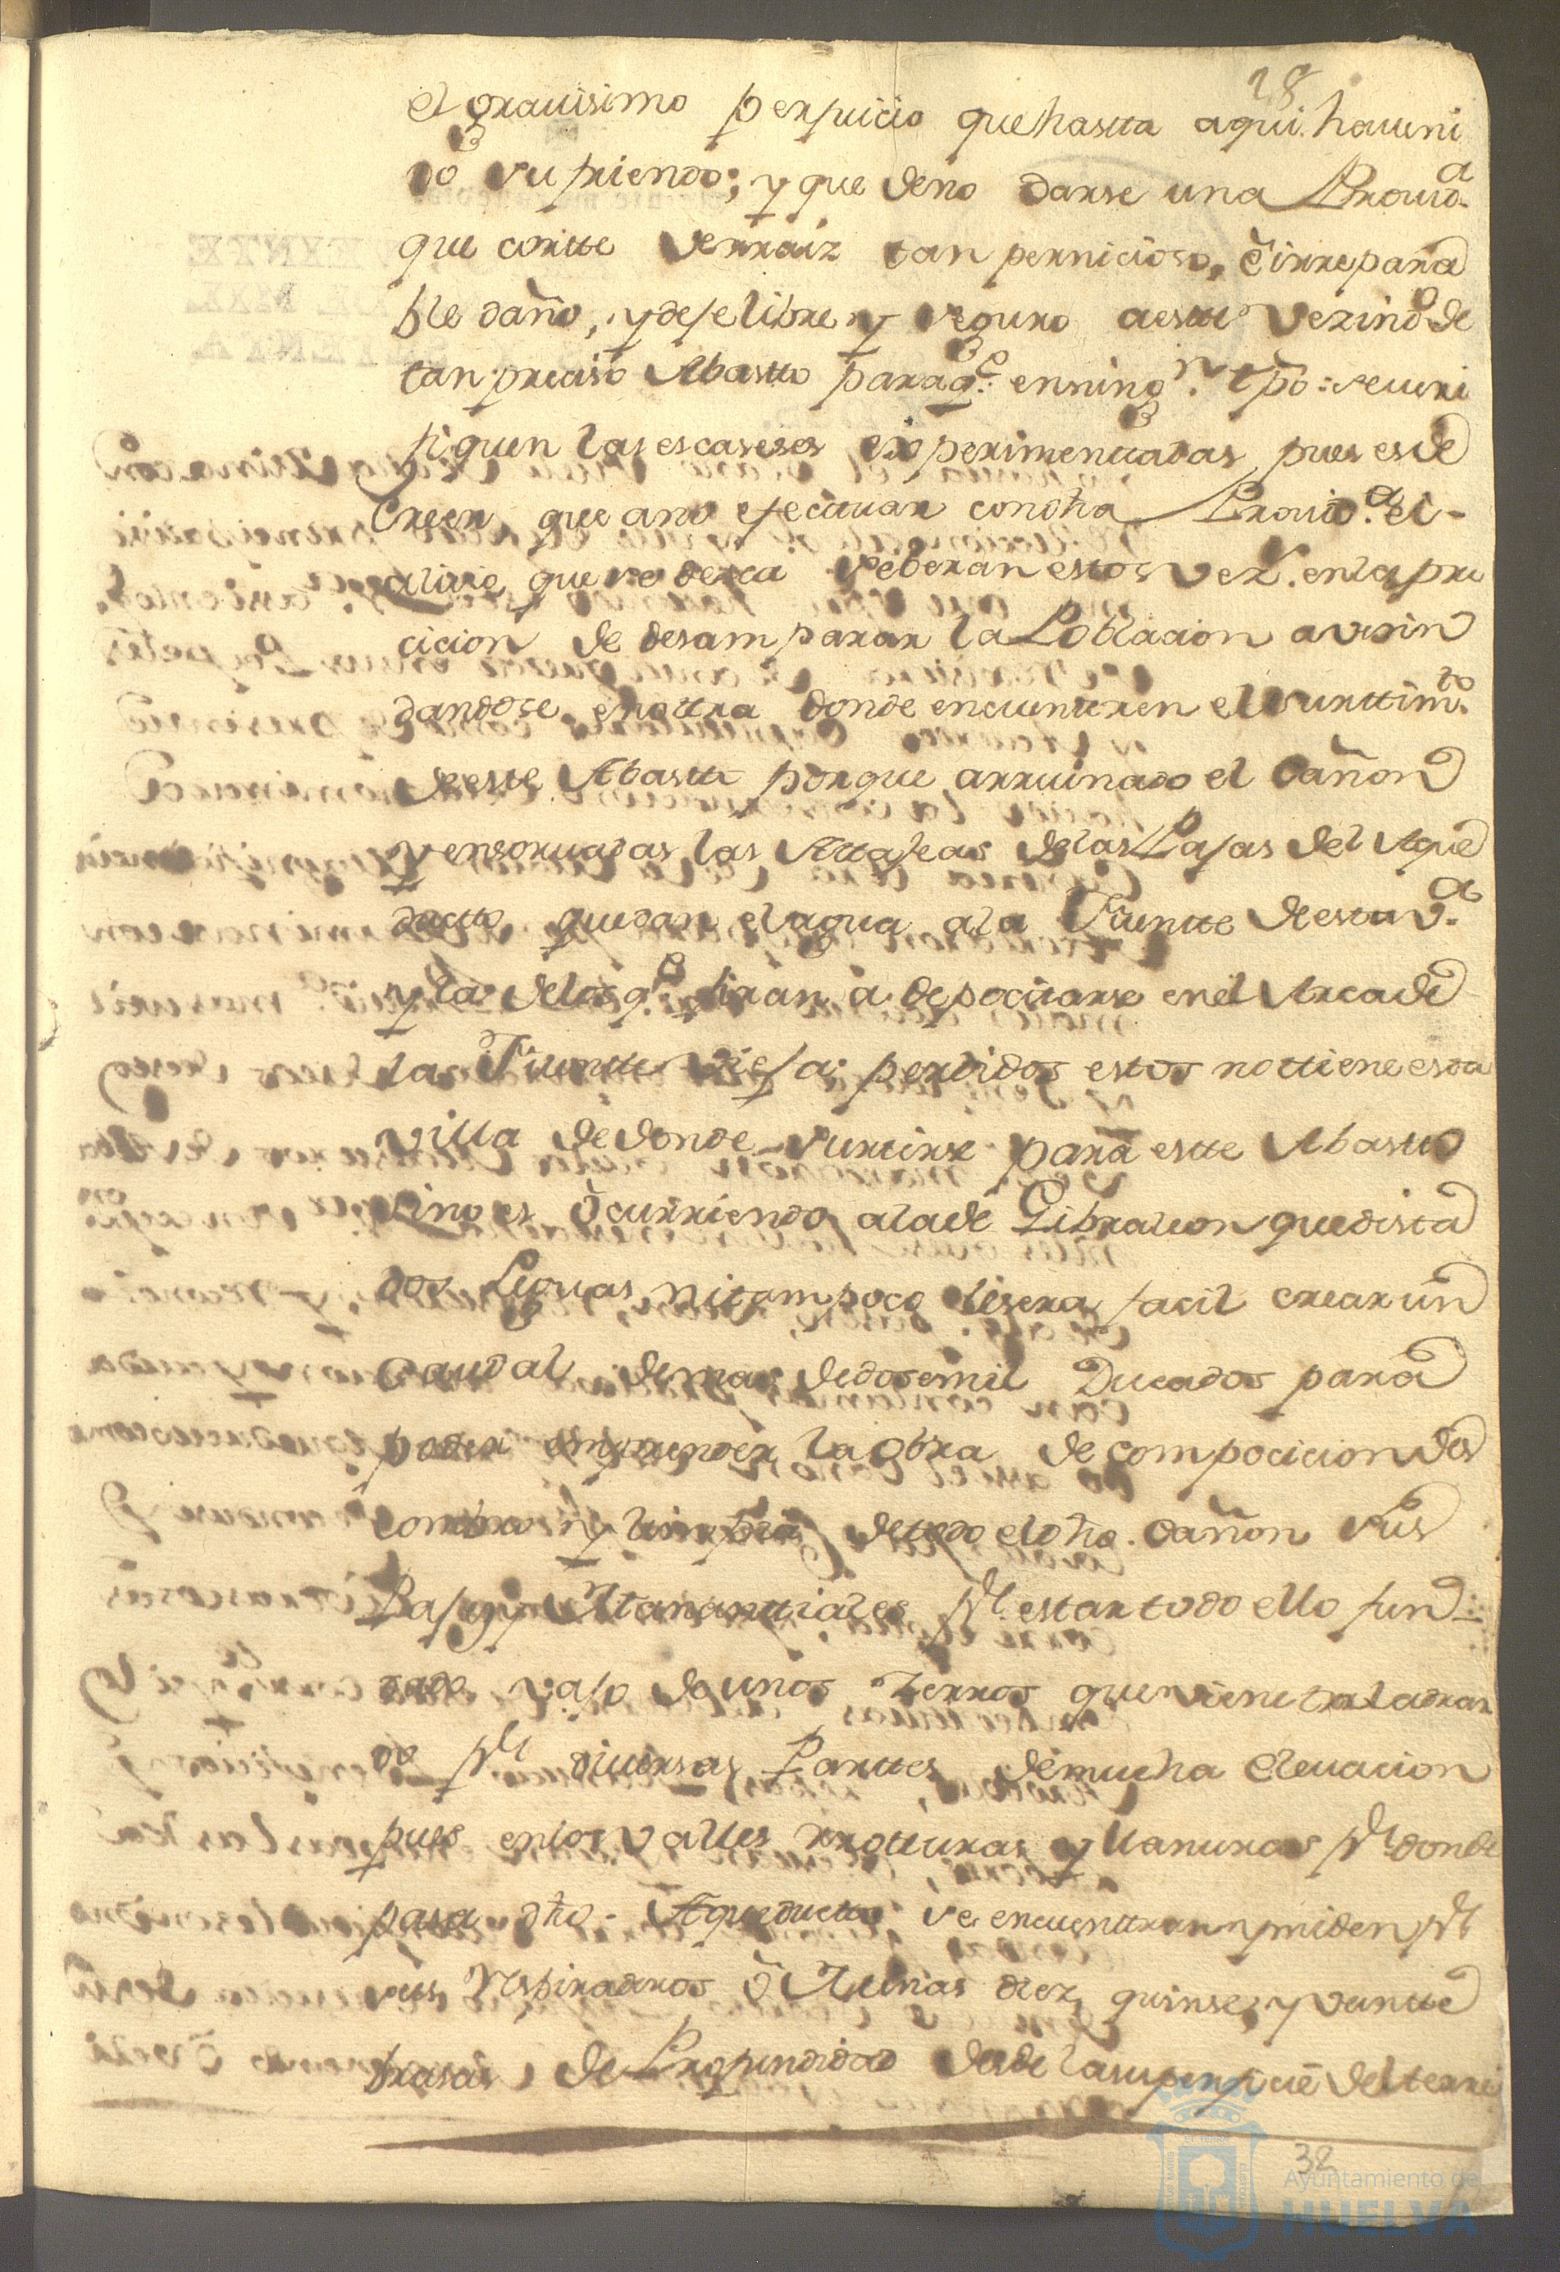 28
el grauisimo perjuicio que hastta aqui ha ueni
do sufriendo; y que de no darse una Provid.ª
que cortte de rraiz tan pernicioso, è irrepara
ble daño, y deje libre y seguro a estte Vezind.º de
tan preciso Abastto para q.e en ning.n tpõ: se veri
fiquen las escaseses experimentadas, pues es de
Creer, que a no efectuar con dha Provid.ª el
alivio, que se desea se beran estos vez.s en la pre
cicion de desamparar la Poblacion avesin
dandose en ottra donde encuentren el surttim.to
de este Abastto porque arruinado el Cañon
y ensoruadas las Attajeas de las Lajas del Aque
ductto que dan el agua a la Fuentte de esta V.ª
y la de las q.e tiran a depocitarse en el Arca de
la Fuentte vieja: perdidos estos no ttiene esta
villa de donde surtirse para estte Abastto
sino es ocurriendo a la de Gibraleon que dista
dos Leguas ni tampoco le sera facil crear un
Caudal de mas de dose mil Ducados para
poder emprender la obra de compocicion des
combro y limpia de todo el dho. Cañon sus
Lajas y Manantiales p.r estar todo ello fun
dado vajo de unos Zerros que viene taladran
do p.r diversas Parttes de mucha elevacion
pues en los valles rrotturas y llanuras p.r donde
pasa dho. Aqueductto se encuenttran y miden p.r
sus Respiraderos ò Lumbreras diez, quinse, y veintte
brasas, de Profundidad desde la superficie del terre
32
Ayuntamiento de
HUELVA